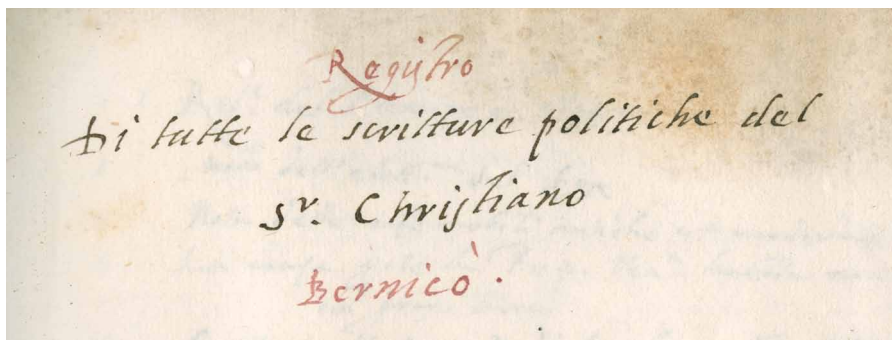 Registro
Di tutte le scritture politiche del
Sr. Christiano
Bernicò.